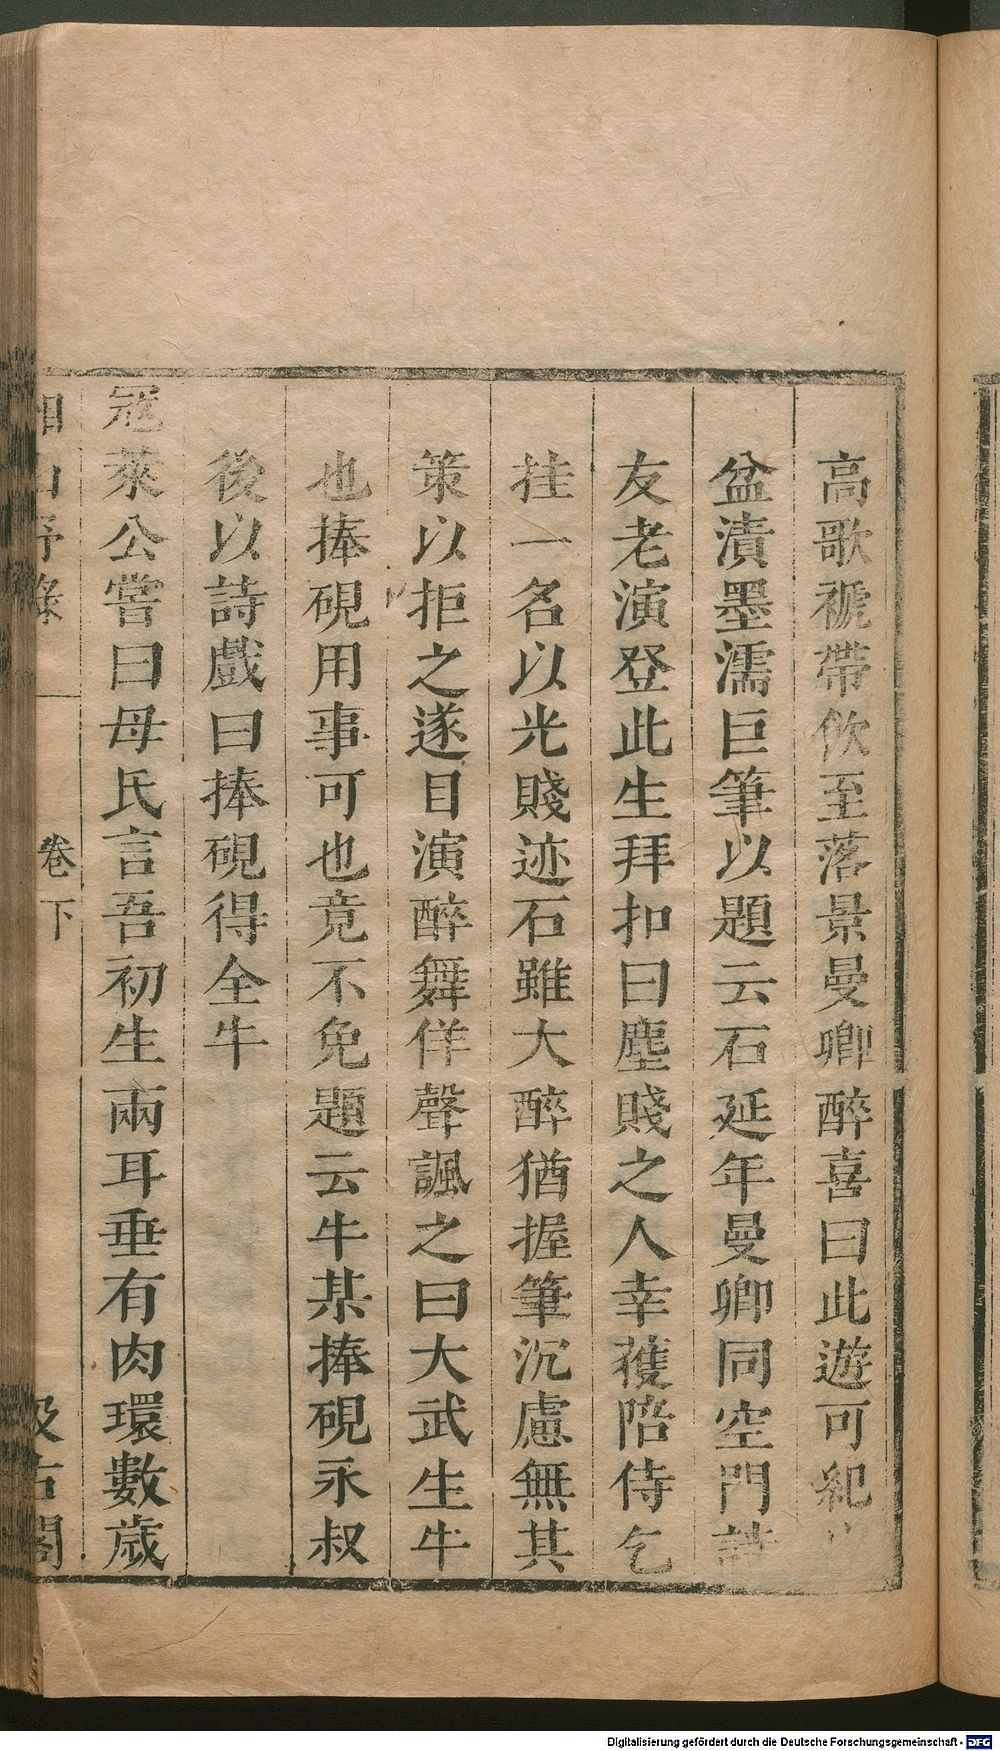 高歌褫帶飲至落景曼卿醉喜曰此遊可紀以
盆漬墨濡巨筆以題云石延年曼卿同空門詩
友老演登此生拜扣曰塵賤之人幸獲陪侍乞
挂一名以光賤迹石雖大醉猶握筆沉慮無其
策以拒之遂目演醉舞佯聲諷之曰大武生牛
也捧硯用事可也竟不免題云牛某捧硯永叔
後以詩戲曰捧硯得全牛
冦萊公嘗曰母氏言吾初生兩耳垂有肉環數歲
湘山野錄 卷下 汲古閣
Digitalisierung gefördert durch die Deutsche Forschungsgemeinschaft - DFG